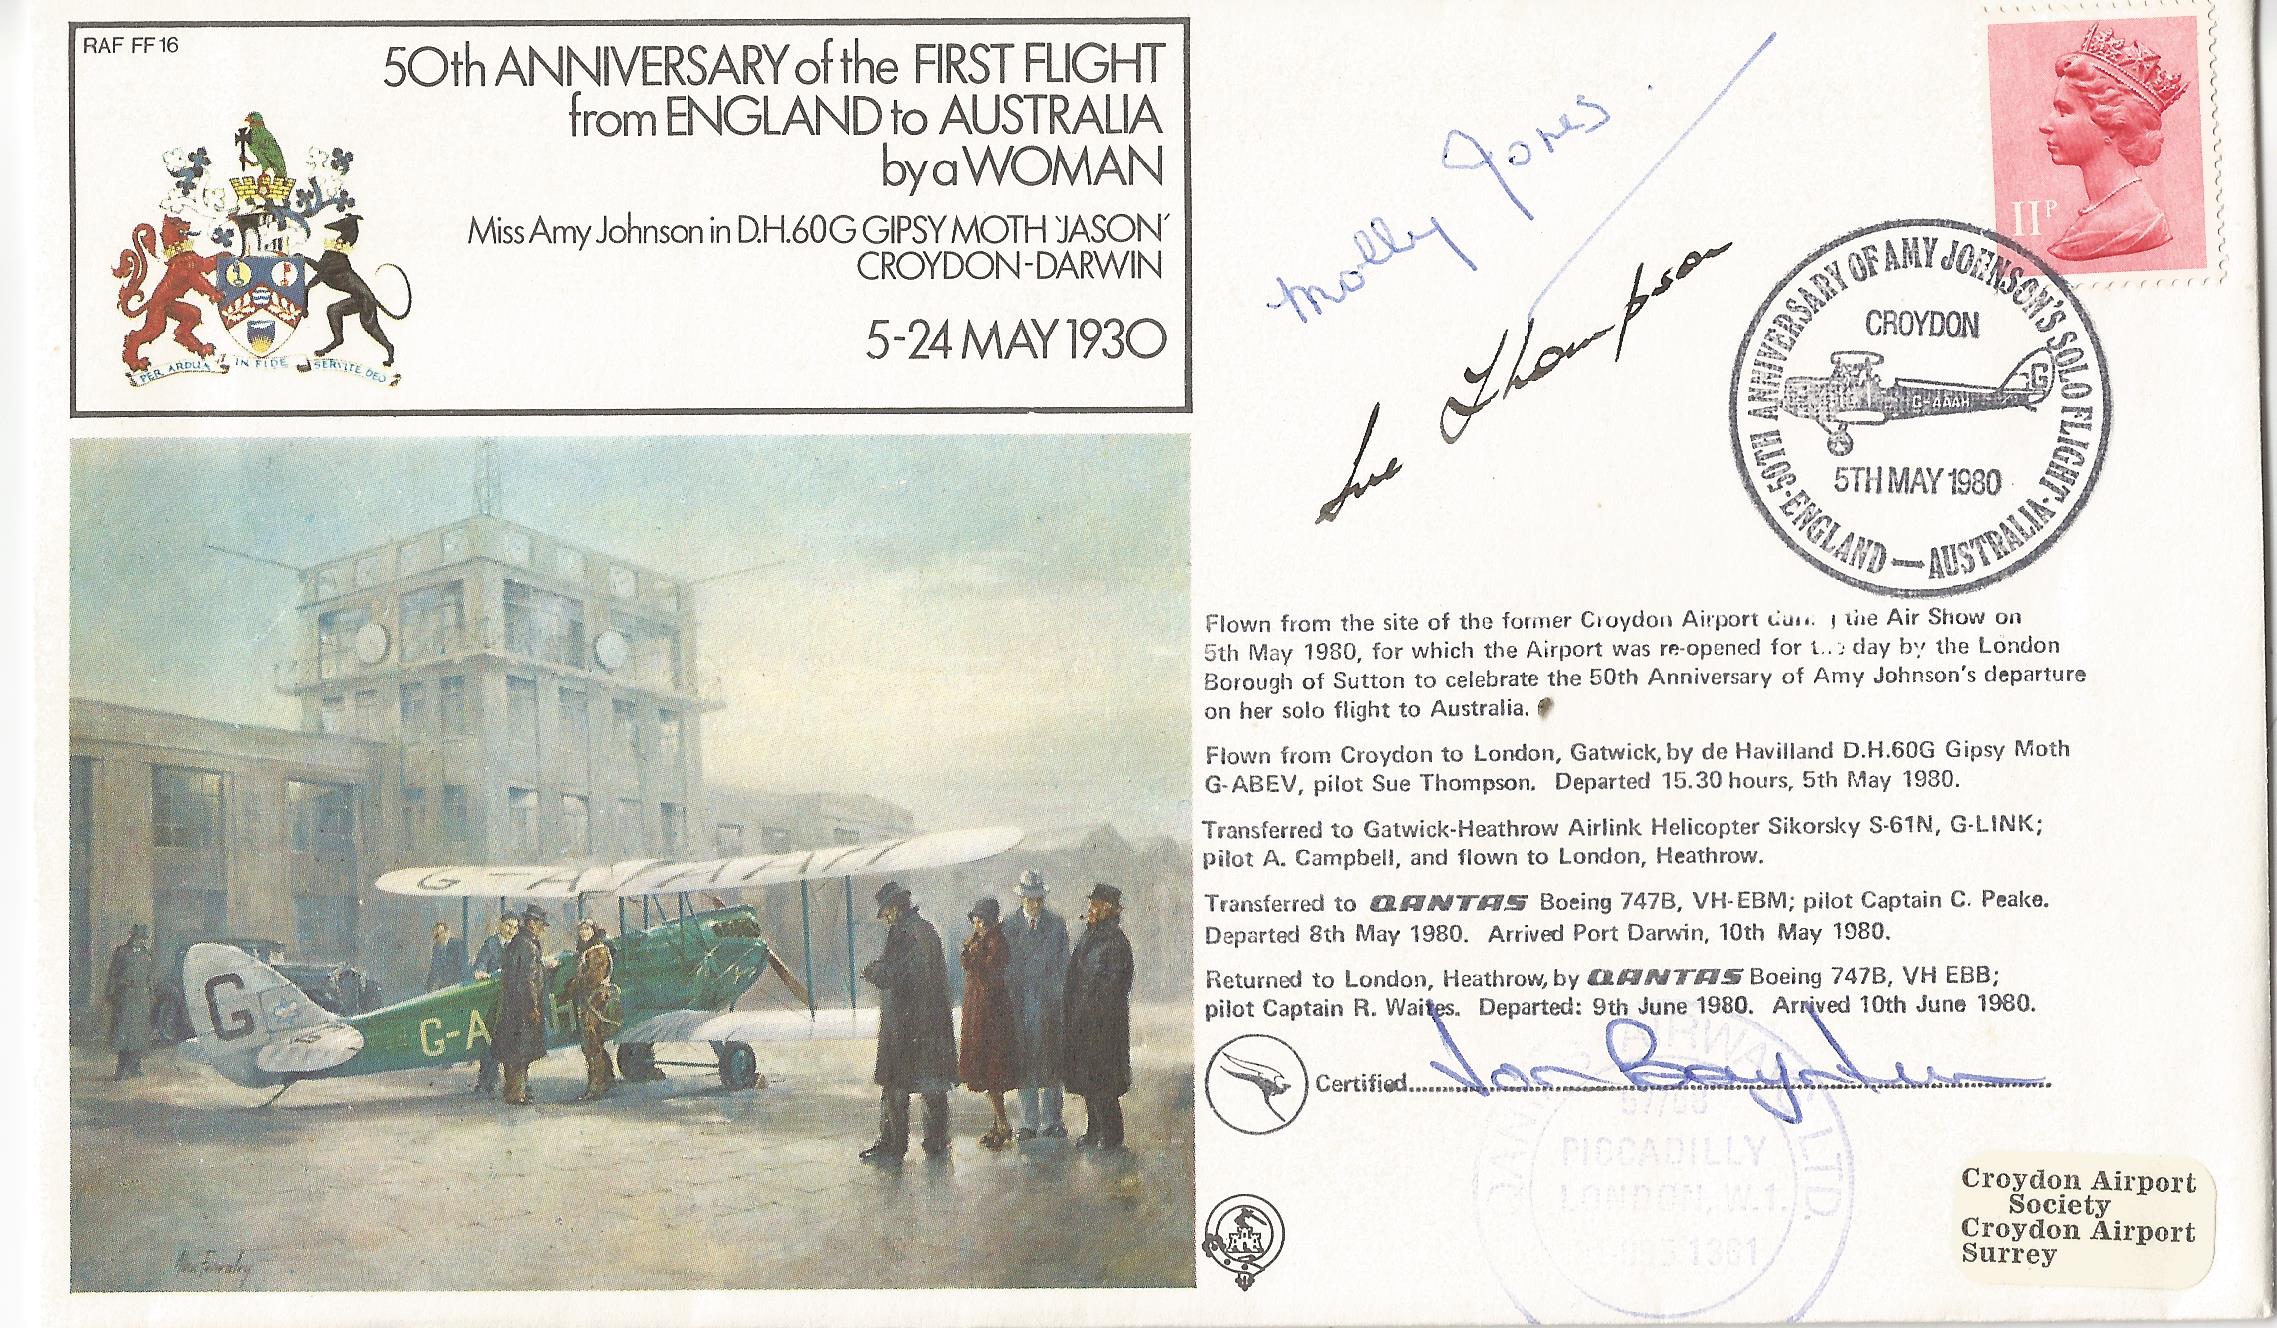 RAF FF16
50th ANNIVERSARY of the FIRST FLIGHT
from ENGLAND to AUSTRALIA
by a WOMAN
Miss Amy Johnson in D.H.60G GIPSY MOTH 'JASON'
CROYDON-DARWIN
5-24 MAY 1930
PER ARDUA IN FIDE SERVITE DEO
G-A
G
G-A
H
Molly Jones.
Sue Thompson
11P
50TH ANNIVERSARY OF AMY JOHNSON'S SOLO FLIGHT·
·ENGLAND — AUSTRALIA·
CROYDON
G-AAAH
G
5TH MAY 1980
Flown from the site of the former Croydon Airport the Air Show on
5th May 1980, for which the Airport was re-opened for day by the London
Borough of Sutton to celebrate the 50th Anniversary of Amy Johnson's departure
on her solo flight to Australia.
Flown from Croydon to London, Gatwick, by de Havilland D.H.60G Gipsy Moth
G-ABEV, pilot Sue Thompson. Departed 15.30 hours, 5th May 1980.
Transferred to Gatwick-Heathrow Airlink Helicopter Sikorsky S-61N, G-LINK;
pilot A. Campbell, and flown to London, Heathrow.
Transferred to QANTAS Boeing 747B, VH-EBM; pilot Captain C. Peake.
Departed 8th May 1980. Arrived Port Darwin, 10th May 1980.
Returned to London, Heathrow, by QANTAS Boeing 747B, VH EBB;
pilot Captain R. Waites. Departed: 9th June 1980. Arrived 10th June 1980.
Certified
QANTAS AIRWAYS LTD.
PICCADILLY
LONDON, W.1.
1981
Croydon Airport
Society
Croydon Airport
Surrey